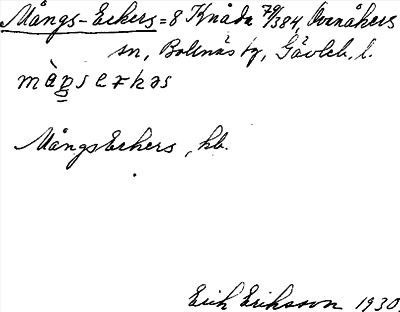 Mångs-Eckers = 8 Knåda 79/384, Ovanåkers
sn, Bollnäs tg, Gävleb. l.
Mångs Eckers, hb.
Erik Eriksson 1930.